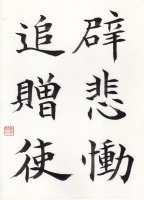 辟悲慟
追贈使